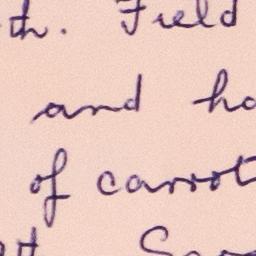 th. Field
and ho
of carrot